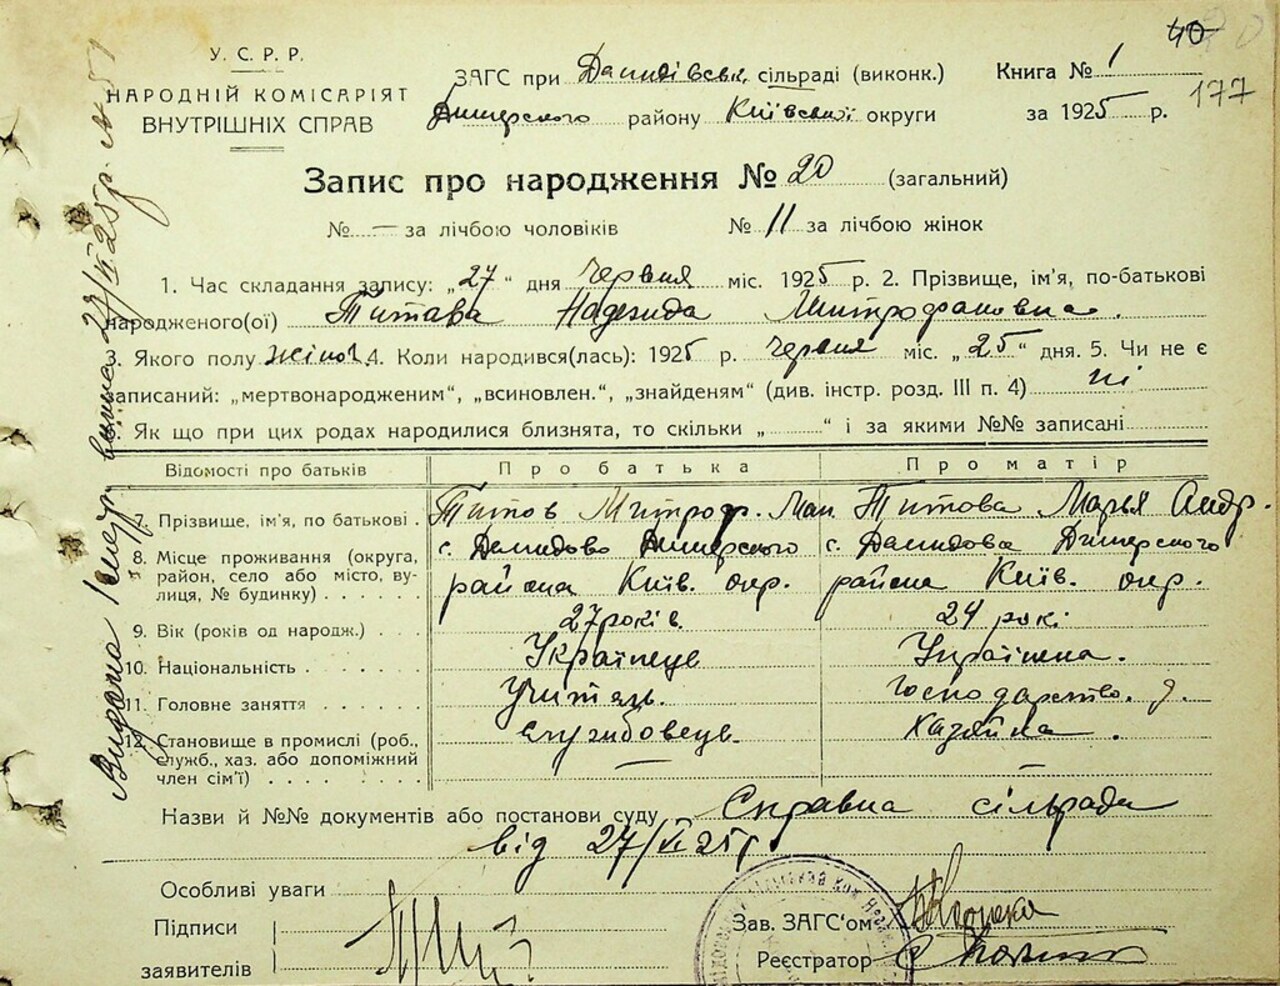 40
177
У. С. Р. Р.
НАРОДНІЙ КОМІСАРІЯТ
ВНУТРІШНІХ СПРАВ
ЗАГС при Демидівськ. сільраді (виконк.)
Димерського району Київської округи
Книга № 1
за 1925 р.
Запис про народження № 20 (загальний)
№ — за лічбою чоловіків № 11 за лічбою жінок
1. Час складання запису: „27“ дня червня міс. 1925 р. 2. Прізвище, ім’я, по-батькові
народженого(ої) Титова Надежида Митрофановна.
3. Якого полу жіноч. 4. Коли народився(лась): 1925 р. червня міс. „25“ дня. 5. Чи не є
записаний: „мертвонародженим“, „всиновлен.“, „знайденям“ (див. інстр. розд. III п. 4) ні
6. Як що при цих родах народилися близнята, то скільки „ “ і за якими №№ записані
Відомості про батьків Про батька Про матір
7. Прізвище, ім’я, по батькові . Титов Митроф. Ман. Титова Марья Андр.
8. Місце проживання (округа, район, село або місто, вулиця, № будинку) . . . . . .
с. Демидово Димерського с. Демидова Димерського
района Київ. окр. района Київ. окр.
9. Вік (років од народж.) . . . 27 років. 24 рокі
10. Національність . . . . . . Українець Українка.
11. Головне заняття . . . . . . Учитель. Господарство. д.
12. Становище в промислі (роб., служб., хаз. або допоміжний член сім’ї) . . . . . . . . службовець. Хазяйка.
— —
Назви й №№ документів або постанови суду Справка сільрада
від 27/VI 25 р.
Особливі уваги
Підписи
заявителів
Зав. ЗАГС‘ом
Реєстратор
Видана